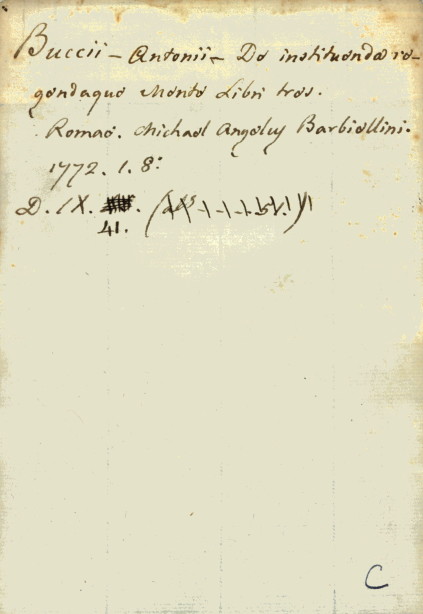 Buccii - Antonii - De instituenda re-
gendaque Mente Libri tres.
Romae. Michael Angelus Barbiellini.
1772. 1. 8:
D. IX.
41.
C